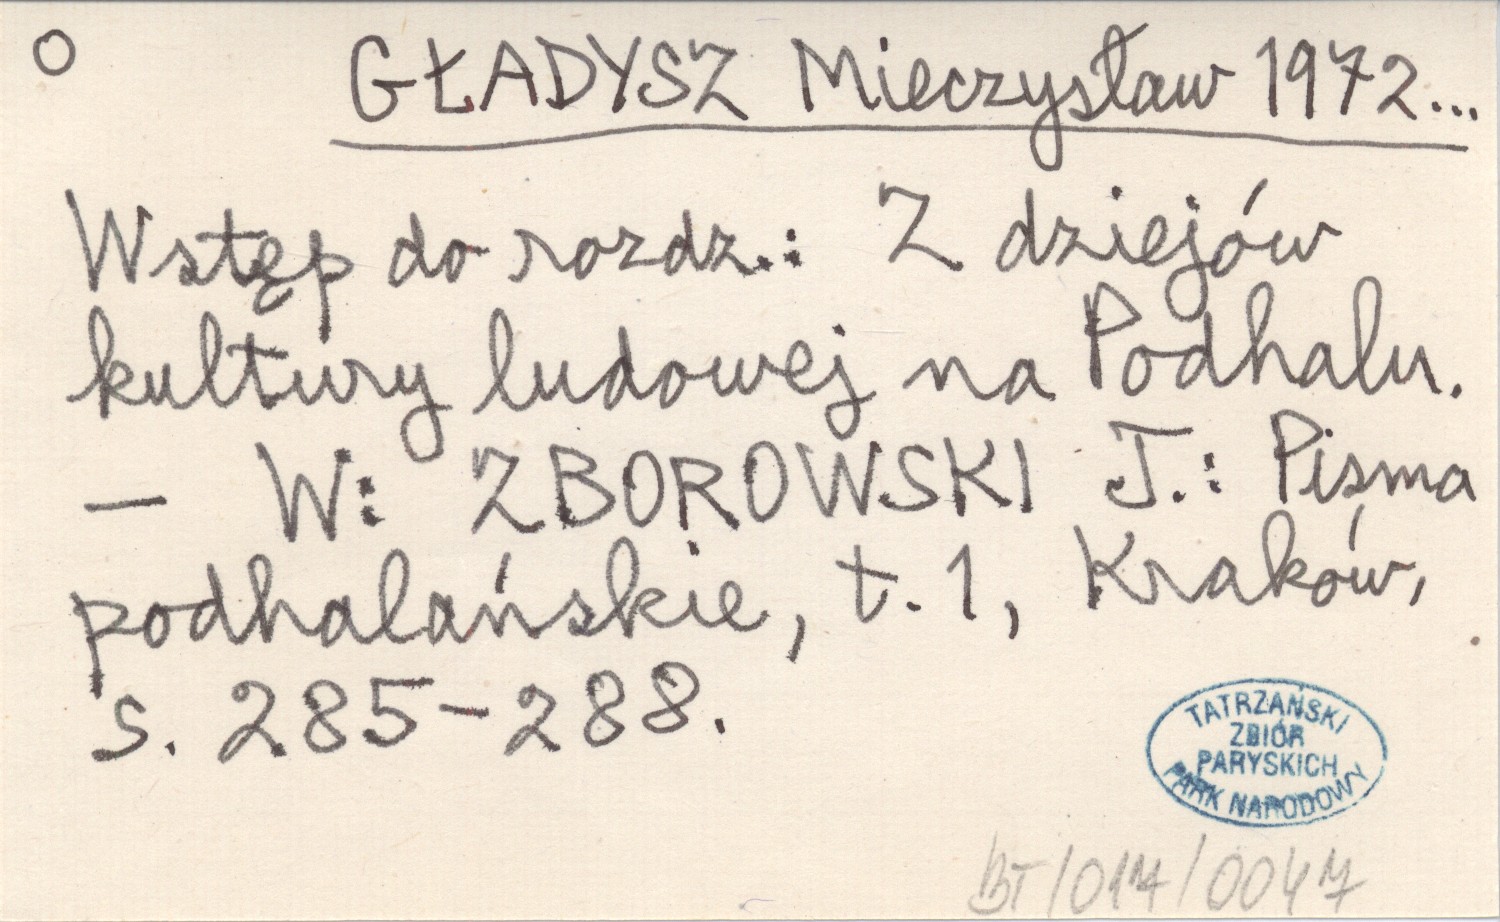 O GŁADYSZ Mieczysław 1972...
Wstęp do rozdz.: Z dziejów
kultury ludowej na Podhalu.
— W: ZBOROWSKI J.: Pisma
podhalańskie, t. 1, Kraków,
s. 285-288.
TATRZAŃSKI
ZBIÓR
PARYSKICH
PARK NARODOWY
BT/017/0047